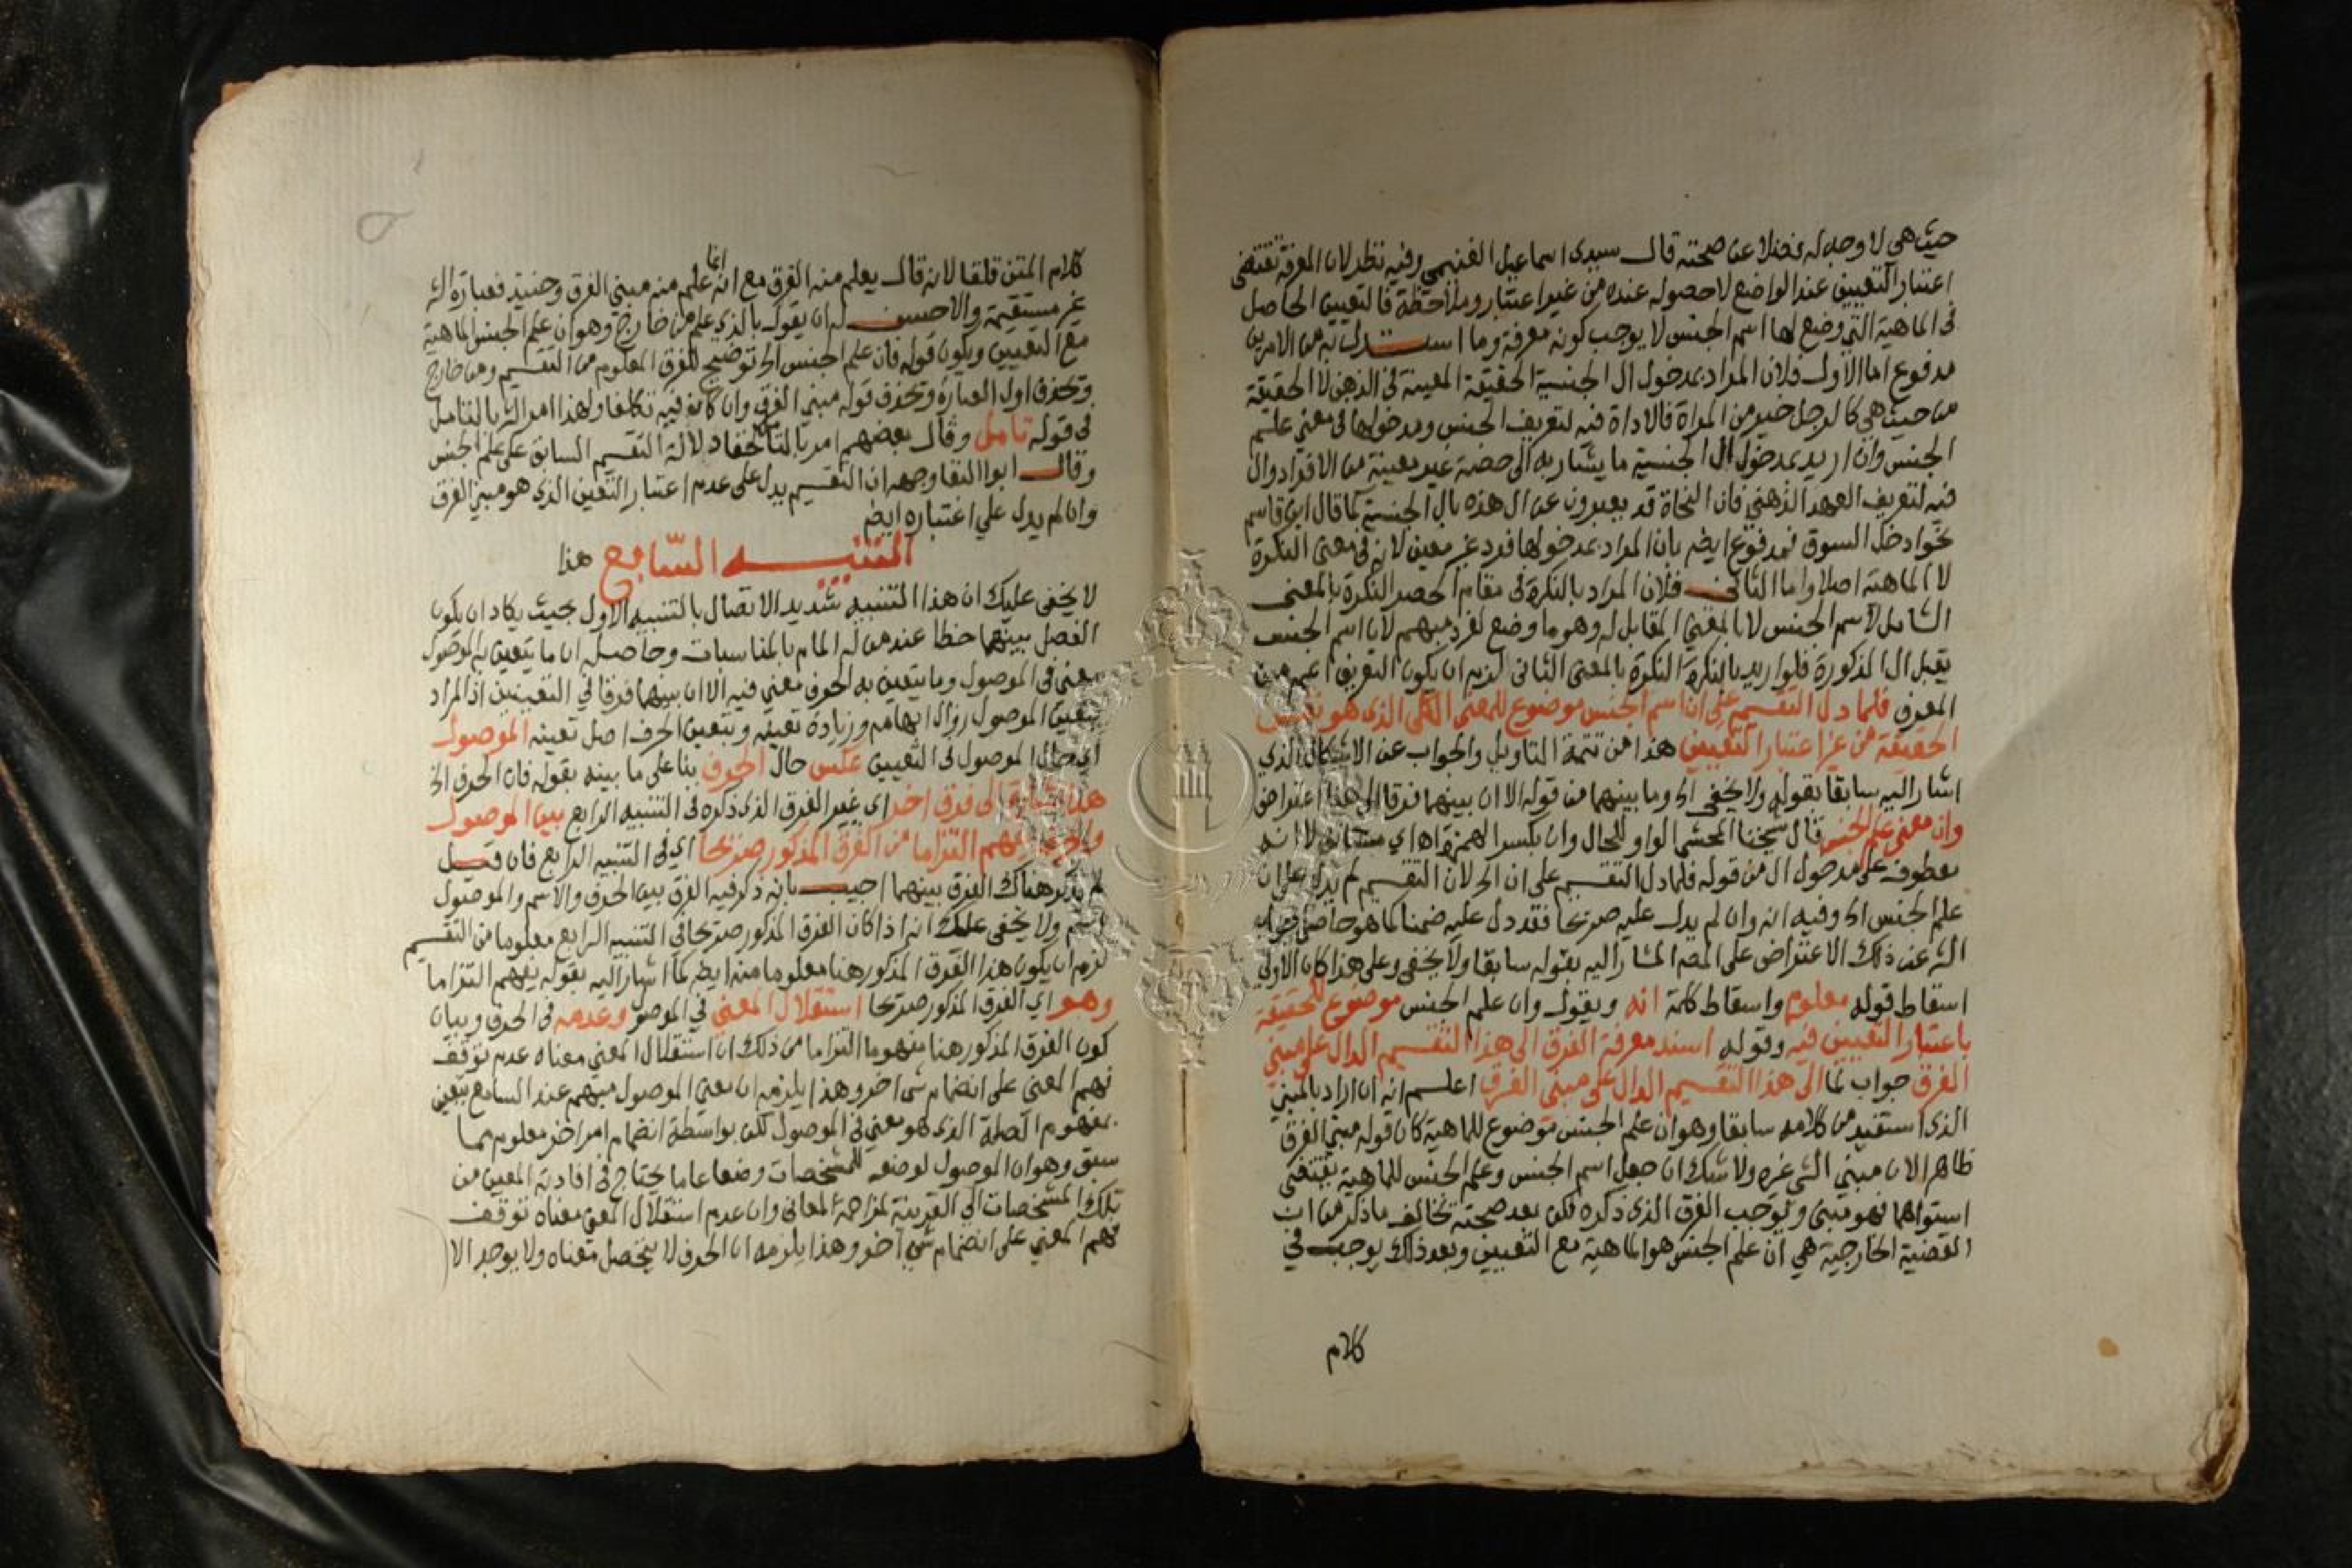 حيث هي لا وجه له فضلا عن صحته قال سيدى اسماعيل الغنيمي وفيه نظر لان المعرفة تقتضى
اعتبار التعيين عند الواضع لا حصوله عنده من غير اعتبار وملاحظة فالتعيين الحاصل
فى الماهية التى وضع لها اسم الجنس لا يوجب كونه معرفة وما استدل به من الامرين
مدفوع اما الاول فلان المراد بمدخول ال الجنسية الحقيقة المعينة فى الذهن لا الحقيقة
من حيث هي كالرجل خير من المراة فالاداة فيه لتعريف الجنس ومدخولها فى معنى علم
الجنس وان اريد بمدخول ال الجنسية ما يشار به الى حصة غير معينة من الافراد وال
فيه لتعريف العهد الذهني فان النحاة قد يعبرون عن ال هذه بال الجنسية كما قال ابن قاسم
نحو ادخل السوق فمدفوع ايضا بان المراد بمدخولها فرد غير معين لانه فى معنى النكرة
لا الماهية اصلا واما الثانى فلان المراد بالنكرة فى مقام الحصر النكرة بالمعنى
الشامل لاسم الجنس لا بالمعنى المقابل له وهو ما وضع لفرد مبهم لان اسم الجنس
يقبل ال المذكورة فلو اريد بالنكرة النكرة بالمعنى الثانى لزم ان يكون التعريف اعم من
المعرف فلما دل التقسيم على ان اسم الجنس موضوع للمعنى الكلى الذى هو نفس
الحقيقة من غير اعتبار التعيين هذا من تتمة التاويل والجواب عن الاشكال الذي
اشار اليه سابقا بقوله ولا يخفى اه وما بينهما من قوله الا ان بينهما فرقا الى هنا اعتراض
وان معنى علم الجنس قال شيخنا المحشى الواو للحال وان بكسر الهمزة اه اي مستانف لا انه
معطوف على مدخول ال من قوله فلما دل التقسيم على ان الخ لان التقسيم لم يدل على ان
علم الجنس اه وفيه انه وان لم يدل عليه صريحا فقد دل عليه ضمنا كما هو حاصل جواب
الش عن ذلك الاعتراض على المصـ المشار اليه بقوله سابقا ولا يخفى وعلى هذا كان الاولى
اسقاط قوله معلوم واسقاط كلمة انه ويقول وان علم الجنس موضوع للحقيقة
باعتبار التعيين فيه وقوله اسند معرفة الفرق الى هذا التقسيم الدال على مبنى
الفرق جواب لما الى هذا التقسيم الدال على مبنى الفرق اعلم انه ان اراد بالمبنى
الذى استفيد من كلامه سابقا وهو ان علم الجنس موضوع للماهية كان قوله مبنى الفرق
ظاهر لان مبنى الشي غيره ولا شك ان جعل اسم الجنس وعلم الجنس للماهية يقتضى
استواهما فهو مبنى ويوجب الفرق الذى ذكره لكن بعد صحته تخالف ما ذكر من ان
القضية الخارجية هي ان علم الجنس هو الماهية مع التعيين وبعد ذلك يوجب فى
كلام
كلام المتن قلقا لانه قال يعلم منه الفرق مع انه انما علم منه مبنى الفرق وحينئذ فعبارة الش
غير مستقيمة والاحسن له ان يقول بالذي علم من خارج وهو ان علم الجنس الماهية
مع التعيين ويكون قوله فان علم الجنس اه توضيح للفرق المعلوم من التقسيم ومن خارج
وتحذف اول العبارة وتحذف قوله مبنى الفرق وان كان فيه تكلفا ولهذا امر الش بالتامل
فى قوله تامل وقال بعضهم امر بالتامل لخفاء دلالة التقسيم السابق على علم الجنس
وقال ابوا البقا وجهه ان التقسيم يدل على عدم اعتبار التعين الذى هو مبنى الفرق
وان لم يدل علي اعتباره ايضا
التنبيه السّابع هذا
لا يخفى عليك ان هذا التنبيه شديد الاتصال بالتنبيه الاول بحيث يكاد ان يكون
الفصل بينهما خطا عند من له المام بالمناسبات وحاصله ان ما يتعين به الموصول
معنى فى الموصول وما يتعين به الحرف معنى فيه الا ان بينهما فرقا فى التعيينين اذ المراد
بتعين الموصول زوال ابهامه وزيادة تعينه وبتعين الحرف اصل تعينه الموصول
اى حال الموصول فى التعيين عكس حال الحرف بنا على ما بينه بقوله فان الحرف الخ
هذا اشارة الى فرق اخر اى غير الفرق الذى ذكره فى التنبيه الرابع بين الموصول
والحرف يفهم التزاما من الفرق المذكور صريحا اي فى التنبيه الرابع فان قيل
لم يذكر هناك الفرق بينهما اجيب بانه ذكر فيه الفرق بين الحرف والاسم والموصول
اسم ولا يخفى عليك انه اذا كان الفرق المذكور صريحا فى التنبيه الرابع معلوما من التقسيم
لزم ان يكون هذا الفرق المذكور هنا معلوما منه ايضا كما اشار اليه بقوله يفهم التزاما
وهو اي الفرق المذكور صريحا استقلال المعنى في الموصو وعدمه فى الحرف وبيان
كون الفرق المذكور هنا مفهوما التزاما من ذلك ان استقلال المعنى معناه عدم توقف
فهم المعنى على انضمام شى اخر وهذا يلزمه ان معنى الموصول مبهم عند السامع يتعين
بمفهوم الصلة الذى هو معنى فى الموصول لكن بواسطة انضمام امر اخر معلوم مما
سبق وهو ان الموصول لوضعه للمشخصات وضعا عاما يحتاج فى افادته المعين من
تلك المشخصات الى القرينة لمزاحمة المعانى وان عدم استقلال المعنى معناه توقف
فهم المعنى على انضمام شي آخر وهذا يلزمه ان الحرف لا يتحصل معناه ولا يوجد الا